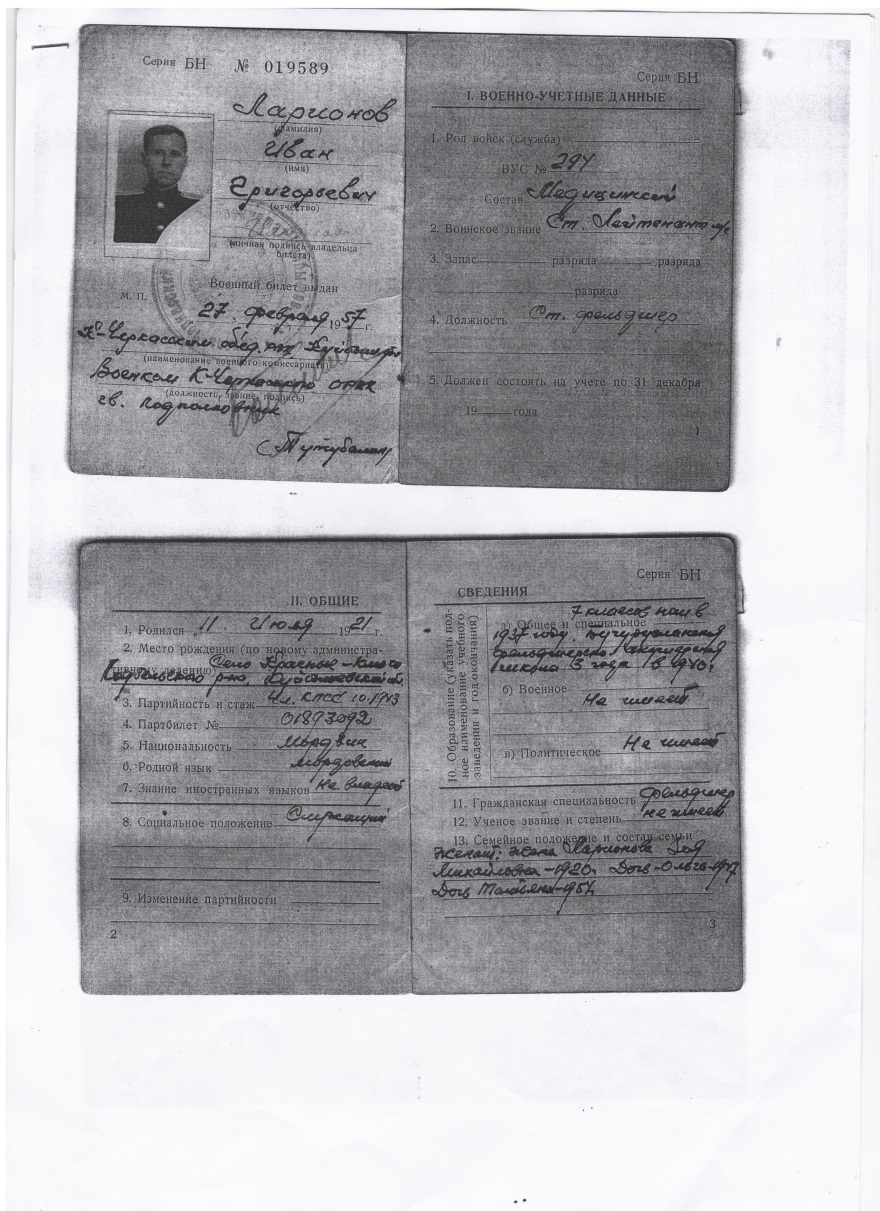 Серия БН № 019589
Ларионов
(фамилия)
Иван
(имя)
Григорьевич
(отчество)
(личная подпись владельца
билета)
М. П.
Военный билет выдан
27 февраля 1957 г.
К-Черкасским обед. рвк
(наименование военного комиссариата)
Военком К-Черкасского ОРВК
(должность, звание, подпись)
гв. подполковник
Серия БН
I. ВОЕННО-УЧЕТНЫЕ ДАННЫЕ
1. Род войск (служба)
ВУС №
Состав Медицинский
2. Воинское звание Ст. Лейтенант м/с
3. Запас разряда разряда
разряда
4. Должность Ст. фельдшер
5. Должен состоять на учете по 31 декабря
19 года
1
II. ОБЩИЕ
1. Родился „11 " Июля 1921 г.
2. Место рождения (по новому администра-
тивному делению) Село Красные-
рна,
3. Партийность и стаж Чл. КПСС 10.1943
4. Партбилет № 01893092
5. Национальность Мордвин
6. Родной язык Мордовский
7. Знание иностранных языков Не владеет
8. Социальное положение Служащий
9. Изменение партийности
2
Серия БН
СВЕДЕНИЯ
10. Образование (указать пол-
ное наименование учебного
заведения и год окончания)
7 классов
а) Общее и специальное
1937 году. Бугурусланская
фельдшерско акушерская
школа 3 года в 1940.
б) Военное Не имеет
в) Политическое Не имеет
11. Гражданская специальность фельдшер
12. Ученое звание и степень не имеет
13. Семейное положение и состав семьи
женат: жена Ларионова
Михайловна-1920. Дочь-Ольга-1947
Дочь Татьяна-1954
3